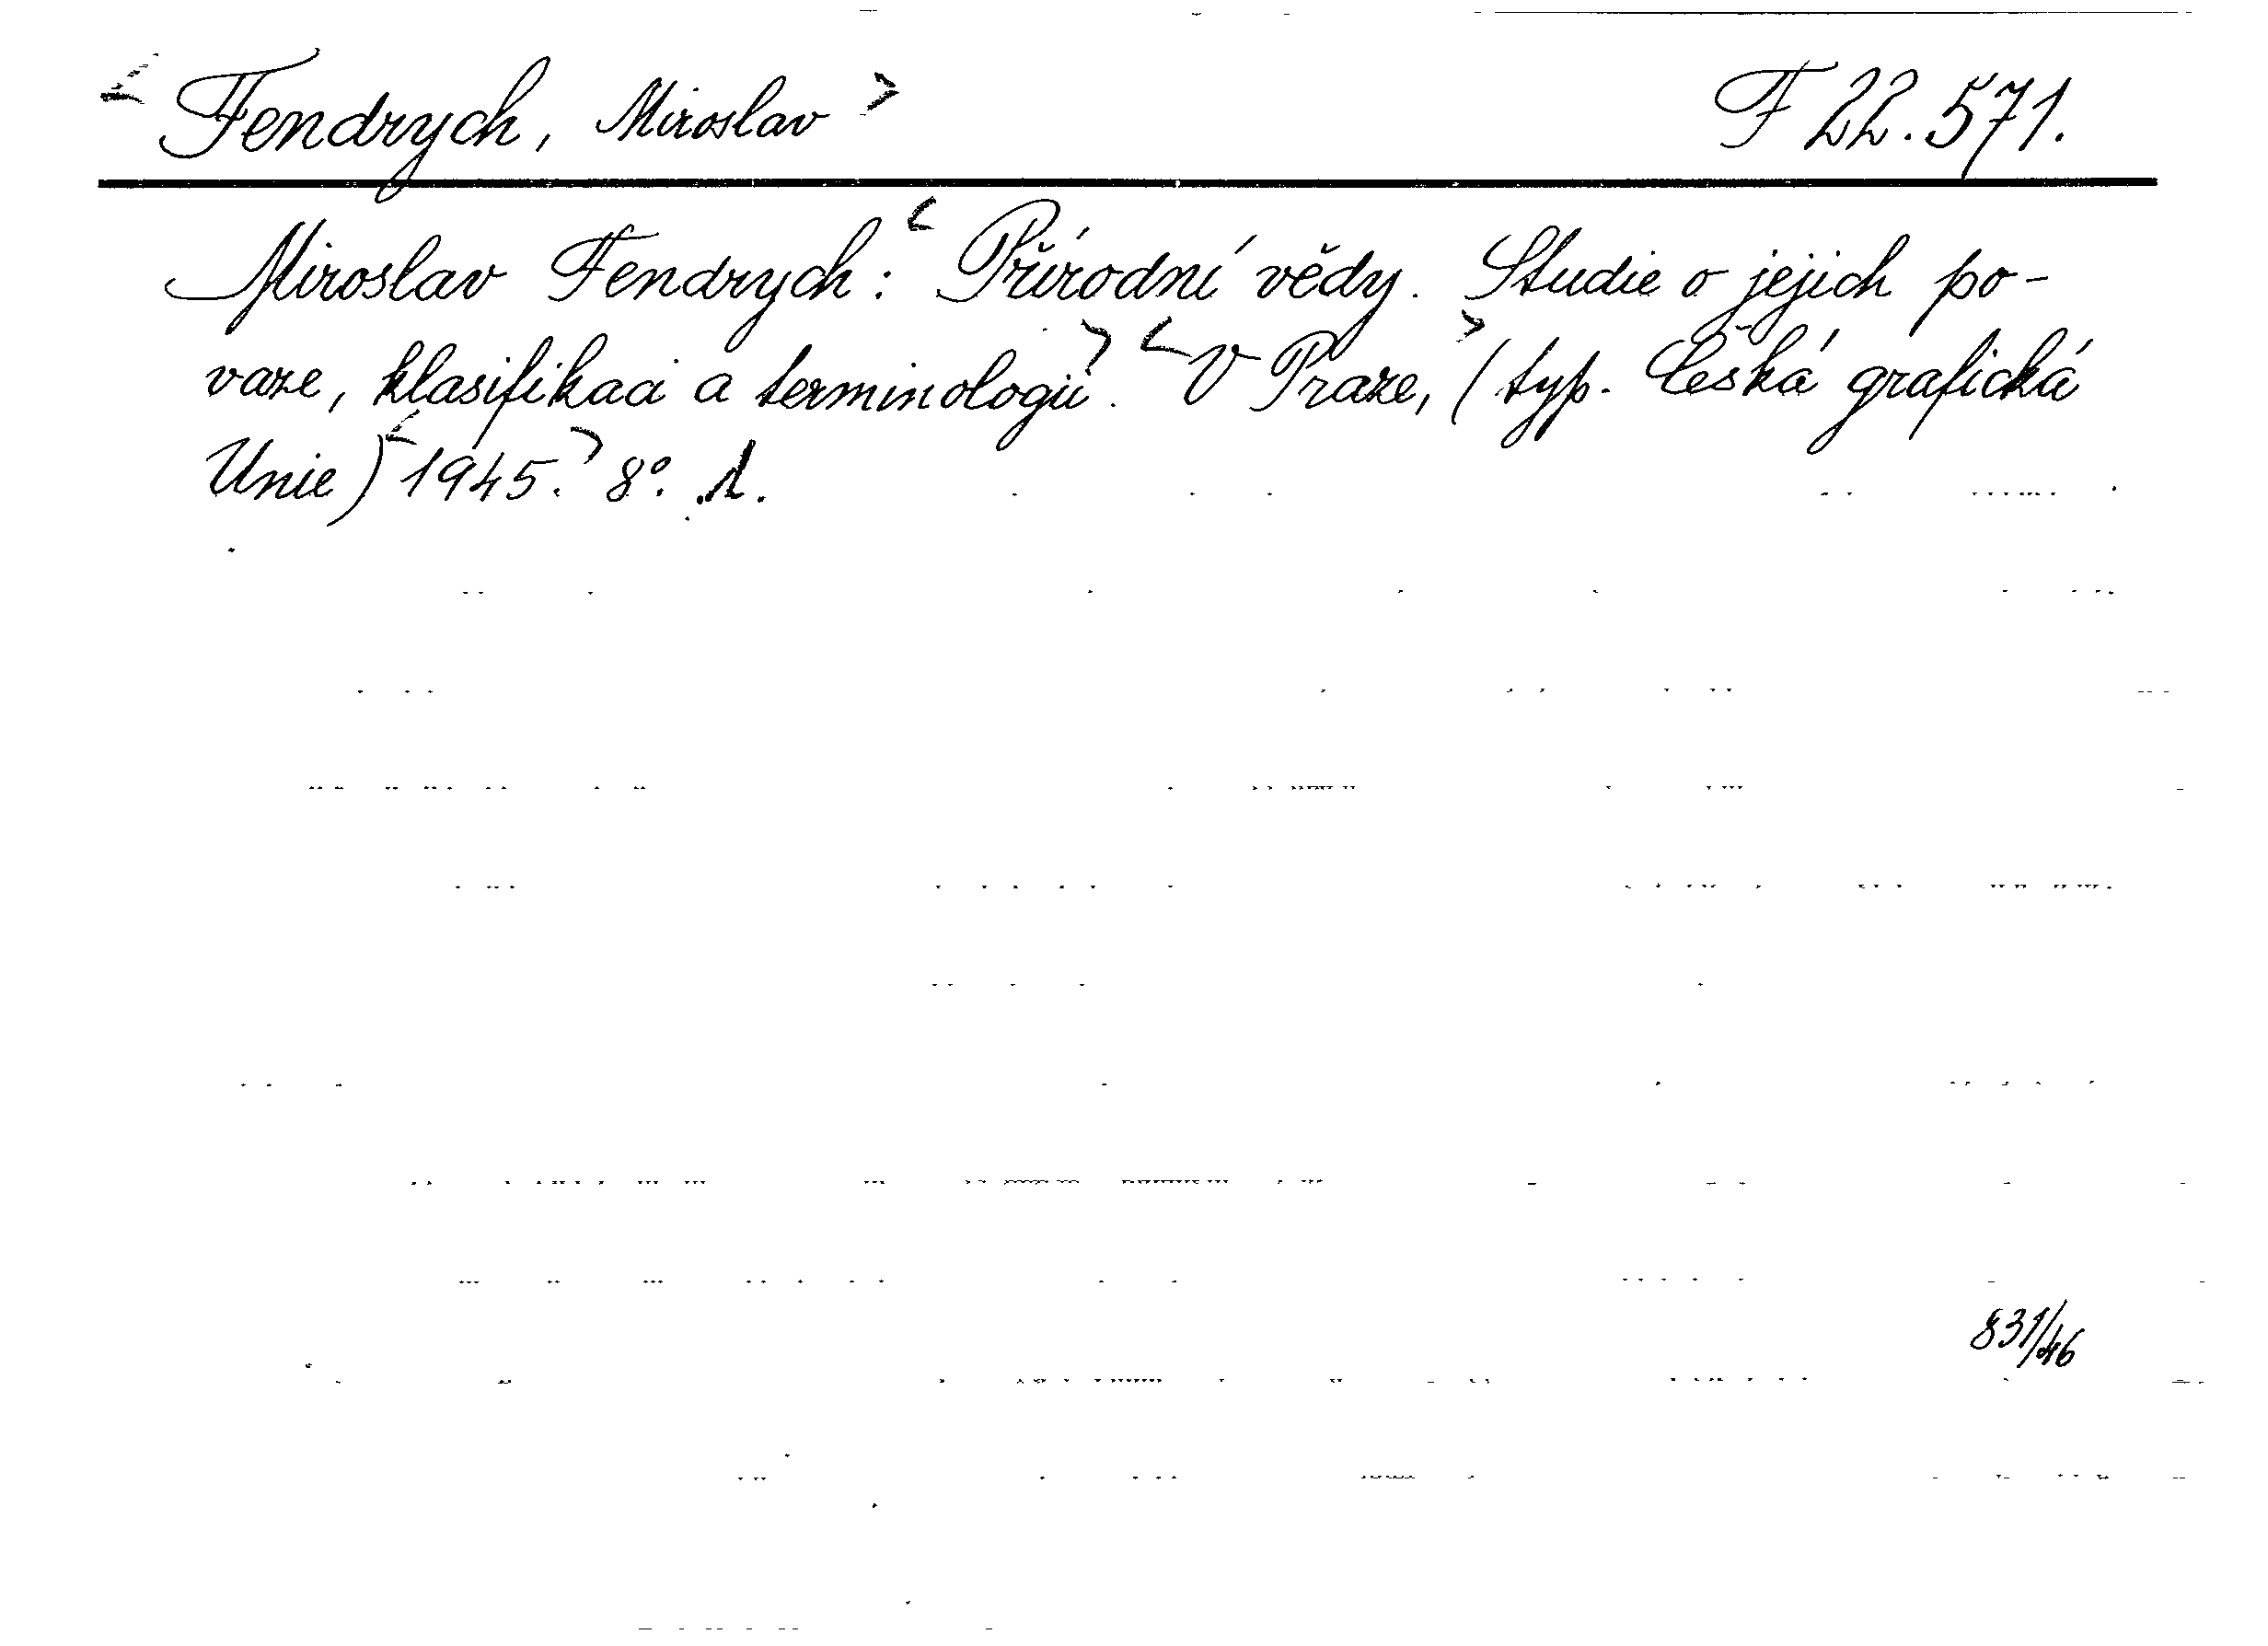 < Fendrych, Miroslav > F 22.571.
Miroslav Fendrych: < Přírodní vědy. Studie o jejich po-
vaze, klasifikaci a terminologii. > < V Praze, > (typ. Česká grafická
Unie) < 1945. > 8°. 1.
831/46